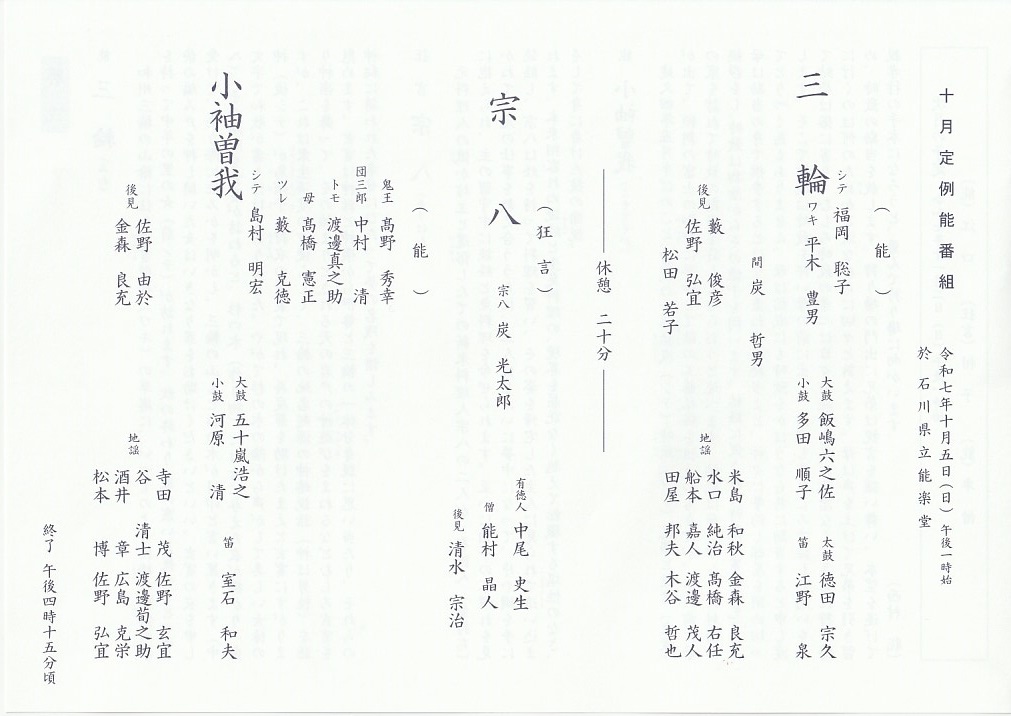 十月定例能番組
令和七年十月五日(日)午後一時始
於 石川県立能楽堂
(能)
三輪
シテ 福岡 聡子
ワキ 平木 豊男
間 炭 哲男
大鼓 飯嶋六之佐
小鼓 多田 順子
太鼓 徳田 宗久
笛 江野 泉
後見
藪 俊彦
佐野 弘宜
松田 若子
地謡
米島 和秋 金森 良充
水口 純治 髙橋 右任
船本 嘉人 渡邊 茂人
田屋 邦夫 木谷 哲也
休憩 二十分
(狂言)
宗八
宗八 炭 光太郎
有徳人 中尾 史生
僧 能村 晶人
後見 清水 宗治
(能)
小袖曽我
鬼王 髙野 秀幸
団三郎 中村 清
トモ 渡邊真之助
母 髙橋 憲正
ツレ 藪 克徳
シテ 島村 明宏
大鼓 五十嵐浩之
小鼓 河原 清
笛 室石 和夫
後見
佐野 由於
金森 良充
地謡
寺田 茂 佐野 玄宜
谷 清士 渡邊荀之助
酒井 章 広島 克栄
松本 博 佐野 弘宜
終了 午後四時十五分頃